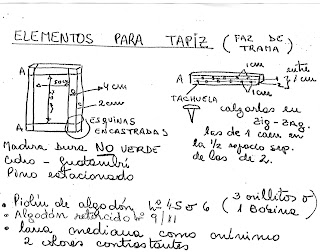 ELEMENTOS PARA TAPIZ (FAZ DE TRAMA)
A
A
50 cm
4 cm
2 cm
ESQUINAS
ENCASTRADAS
1 cm
entre
A
1 cm
TACHUELA
calzarlas en
zig-zag.
las de 1 cm en
la 1/2 espacio sep.
de las de 2.
Madera dura NO VERDE
Cedro - guatambú
Pino estacionado
• Piolín de algodón Nº 4-5 o 6 (3 ovillitos o 1 Bobina)
• Algodón retorcido Nº 9/11
• lana mediana como mínimo
2 colores contrastantes